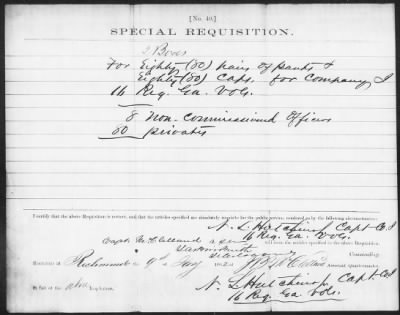 [No. 40.]
SPECIAL REQUISITION.
2 Boxes
For Eighty (80) pairs of pants &
Eighty (80) Caps. for Company I
16 Reg. Ga. Vols.
8 Non-Commissioned Officers
80 privates
I certify that the above Requisition is correct; and that the articles specified are absolutely requisite for the public service, rendered so by the following circumstances:
N. L. Hutchins Capt Co. I
16 Reg. Ga. Vols.
Capt. McClelland a
will issue the articles specified in the above Requisition.
Commanding.
Received at Richmond 9th 1862 of Assistant Quartermaster,
in full of the above Requisition.
N. L. Hutchins Capt. Co I
16 Reg. Ga. Vols.